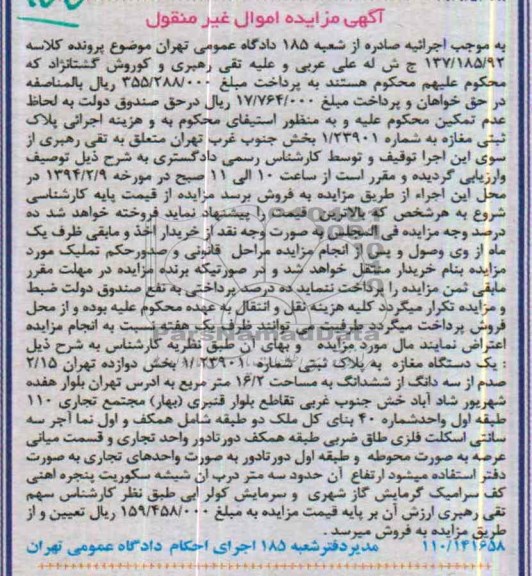 آگهی مزایده اموال غیر منقول
به موجب اجرائیه صادره از شعبه ۱۸۵ دادگاه عمومی تهران موضوع پرونده کلاسه
۱۳۷/۱۸۵/۹۲ ج ش له علی عربی و علیه تقی رهبری و کوروش گشتانژاد که
محکوم علیهم محکوم هستند به پرداخت مبلغ ۳۵۵/۲۸۸/۰۰۰ ریال بالمناصفه
در حق خواهان و پرداخت مبلغ ۱۷/۷۶۴/۰۰۰ ریال درحق صندوق دولت به لحاظ
عدم تمکین محکوم علیه و به منظور استیفای محکوم به و هزینه اجرائی پلاک
ثبتی مغازه به شماره ۱/۲۳۹۰۱ بخش جنوب غرب تهران متعلق به تقی رهبری از
سوی این اجرا توقیف و توسط کارشناس رسمی دادگستری به شرح ذیل توصیف
وارزیابی گردیده و مقرر است از ساعت ۱۰ الی ۱۱ صبح در مورخه ۱۳۹۴/۲/۹ در
محل این اجراء از طریق مزایده به فروش برسد مزایده از قیمت پایه کارشناسی
شروع به هرشخص که بالاترین قیمت را پیشنهاد نماید فروخته خواهد شد ده
درصد وجه مزایده فی المجلس به صورت وجه نقد از خریدار اخذ و مابقی ظرف یک
ماه از وی وصول و پس از انجام مزایده مراحل قانونی و صدورحکم تملیک مورد
مزایده بنام خریدار منتقل خواهد شد و در صورتیکه برنده مزایده در مهلت مقرر
مابقی ثمن مزایده را پرداخت ننماید ده درصد پرداختی به نفع صندوق دولت ضبط
و مزایده تکرار میگردد کلیه هزینه نقل و انتقال به عهده محکوم علیه بوده و از محل
فروش پرداخت میگردد طرفین می توانند ظرف یک هفته نسبت به انجام مزایده
اعتراض نمایند مال مورد مزایده و بهای آن طبق نظریه کارشناس به شرح ذیل
: یک دستگاه مغازه به پلاک ثبتی شماره ۱/۲۳۹۰۱ بخش دوازده تهران ۲/۱۵
صدم از سه دانگ از ششدانگ به مساحت ۱۶/۲ متر مربع به ادرس تهران بلوار هفده
شهریور شاد آباد خش جنوب غربی تقاطع بلوار قنبری (بهار) مجتمع تجاری ۱۱۰
طبقه اول واحدشماره ۴۰ بنای کل ملک دو طبقه شامل همکف و اول نما آجر سه
سانتی اسکلت فلزی طاق ضربی طبقه همکف دورتادور واحد تجاری و قسمت میانی
عرصه به صورت محوطه و طبقه اول دورتادور به صورت واحدهای تجاری به صورت
دفتر استفاده میشود ارتفاع آن حدود سه متر درب ان شیشه سکوریت پنجره اهنی
کف سرامیک گرمایش گاز شهری و سرمایش کولر آبی طبق نظر کارشناس سهم
تقی رهبری ارزش آن بر پایه قیمت مزایده به مبلغ ۱۵۹/۴۵۸/۰۰۰ ریال تعیین و از
طریق مزایده به فروش میرسد .
۱۱۰/۱۴۱۶۵۸ مدیردفترشعبه ۱۸۵ اجرای احکام دادگاه عمومی تهران